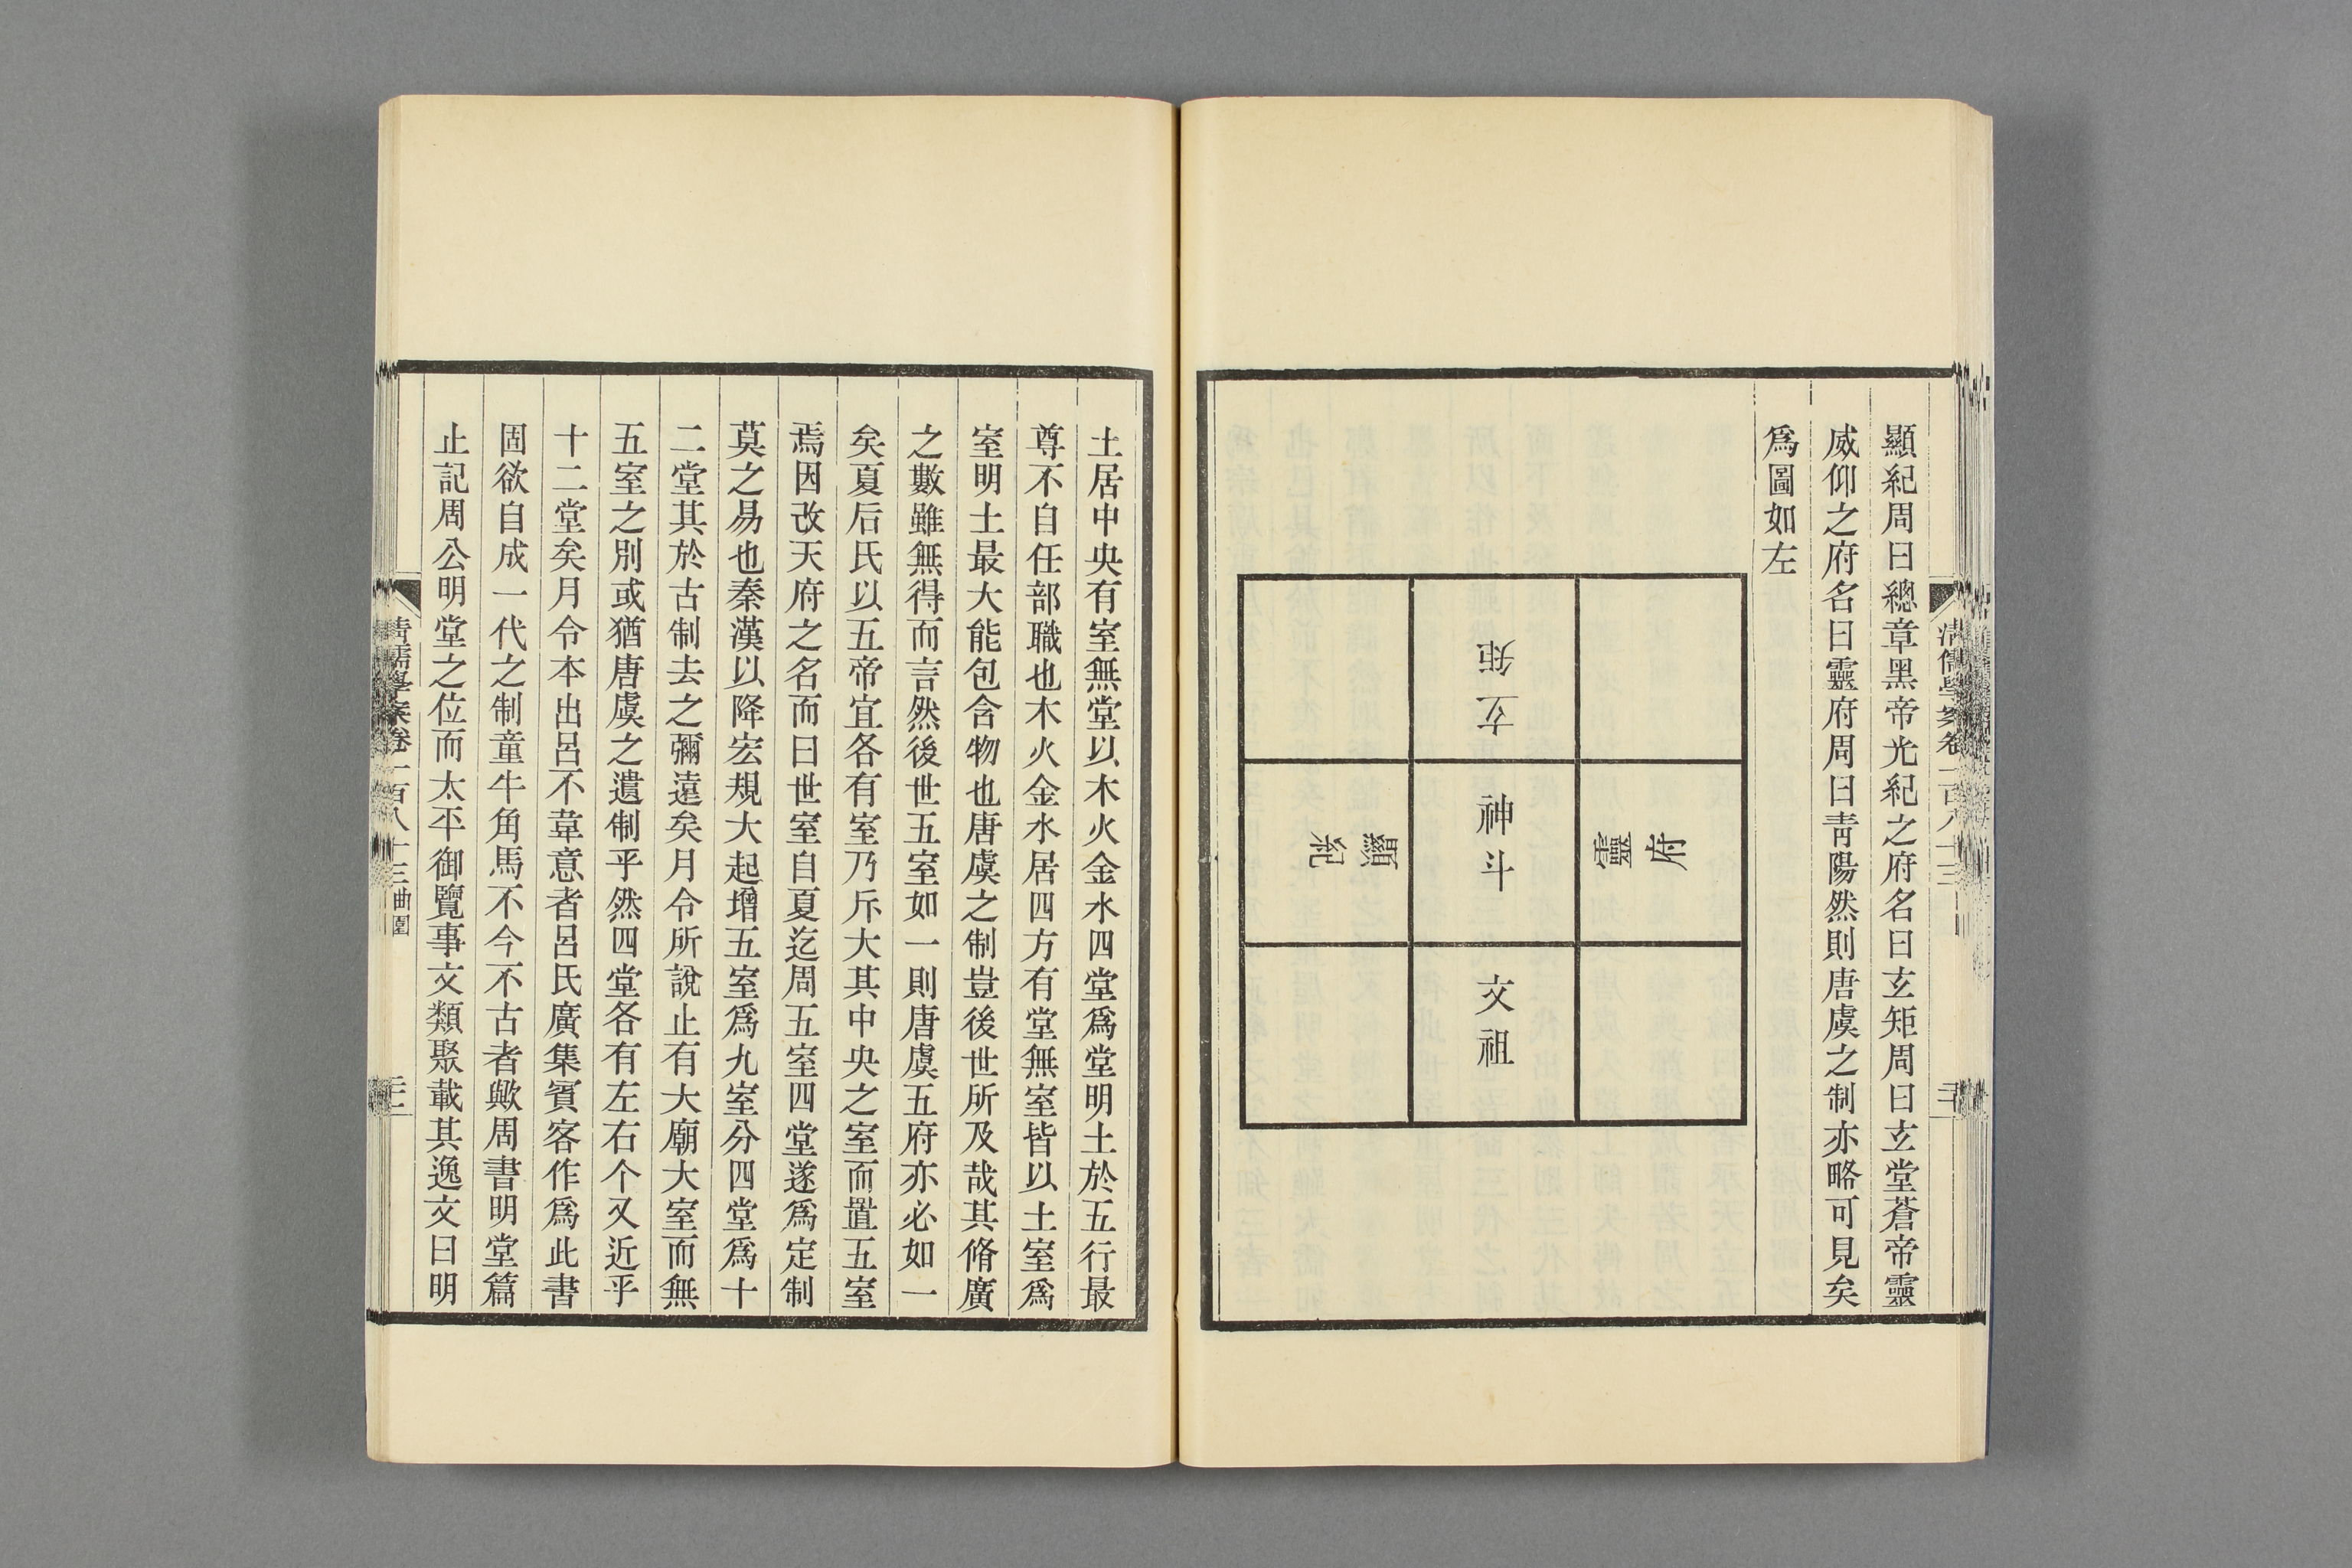 顯紀周曰總章黑帝光紀之府名曰玄矩周曰玄堂蒼帝靈
威仰之府名曰靈府周曰青陽然則唐虞之制亦略可見矣
爲圖如左
玄矩
靈府
神斗
顯紀
文祖
清儒學案卷一百八十三
土居中央有室無堂以木火金水四堂爲堂明土於五行最
尊不自任部職也木火金水居四方有堂無室皆以土室爲
室明土最大能包含物也唐虞之制豈後世所及哉其脩廣
之數雖無得而言然後世五室如一則唐虞五府亦必如一
矣夏后氏以五帝宜各有室乃斥大其中央之室而置五室
焉因改天府之名而曰世室自夏迄周五室四堂遂爲定制
莫之易也秦漢以降宏規大起增五室爲九室分四堂爲十
二堂其於古制去之彌遠矣月令所說止有大廟大室而無
五室之別或猶唐虞之遺制乎然四堂各有左右个又近乎
十二堂矣月令本出呂不韋意者呂氏廣集賓客作爲此書
固欲自成一代之制童牛角馬不今不古者歟周書明堂篇
止記周公明堂之位而太平御覽事文類聚載其逸文曰明
清儒學案卷一百八十三曲園